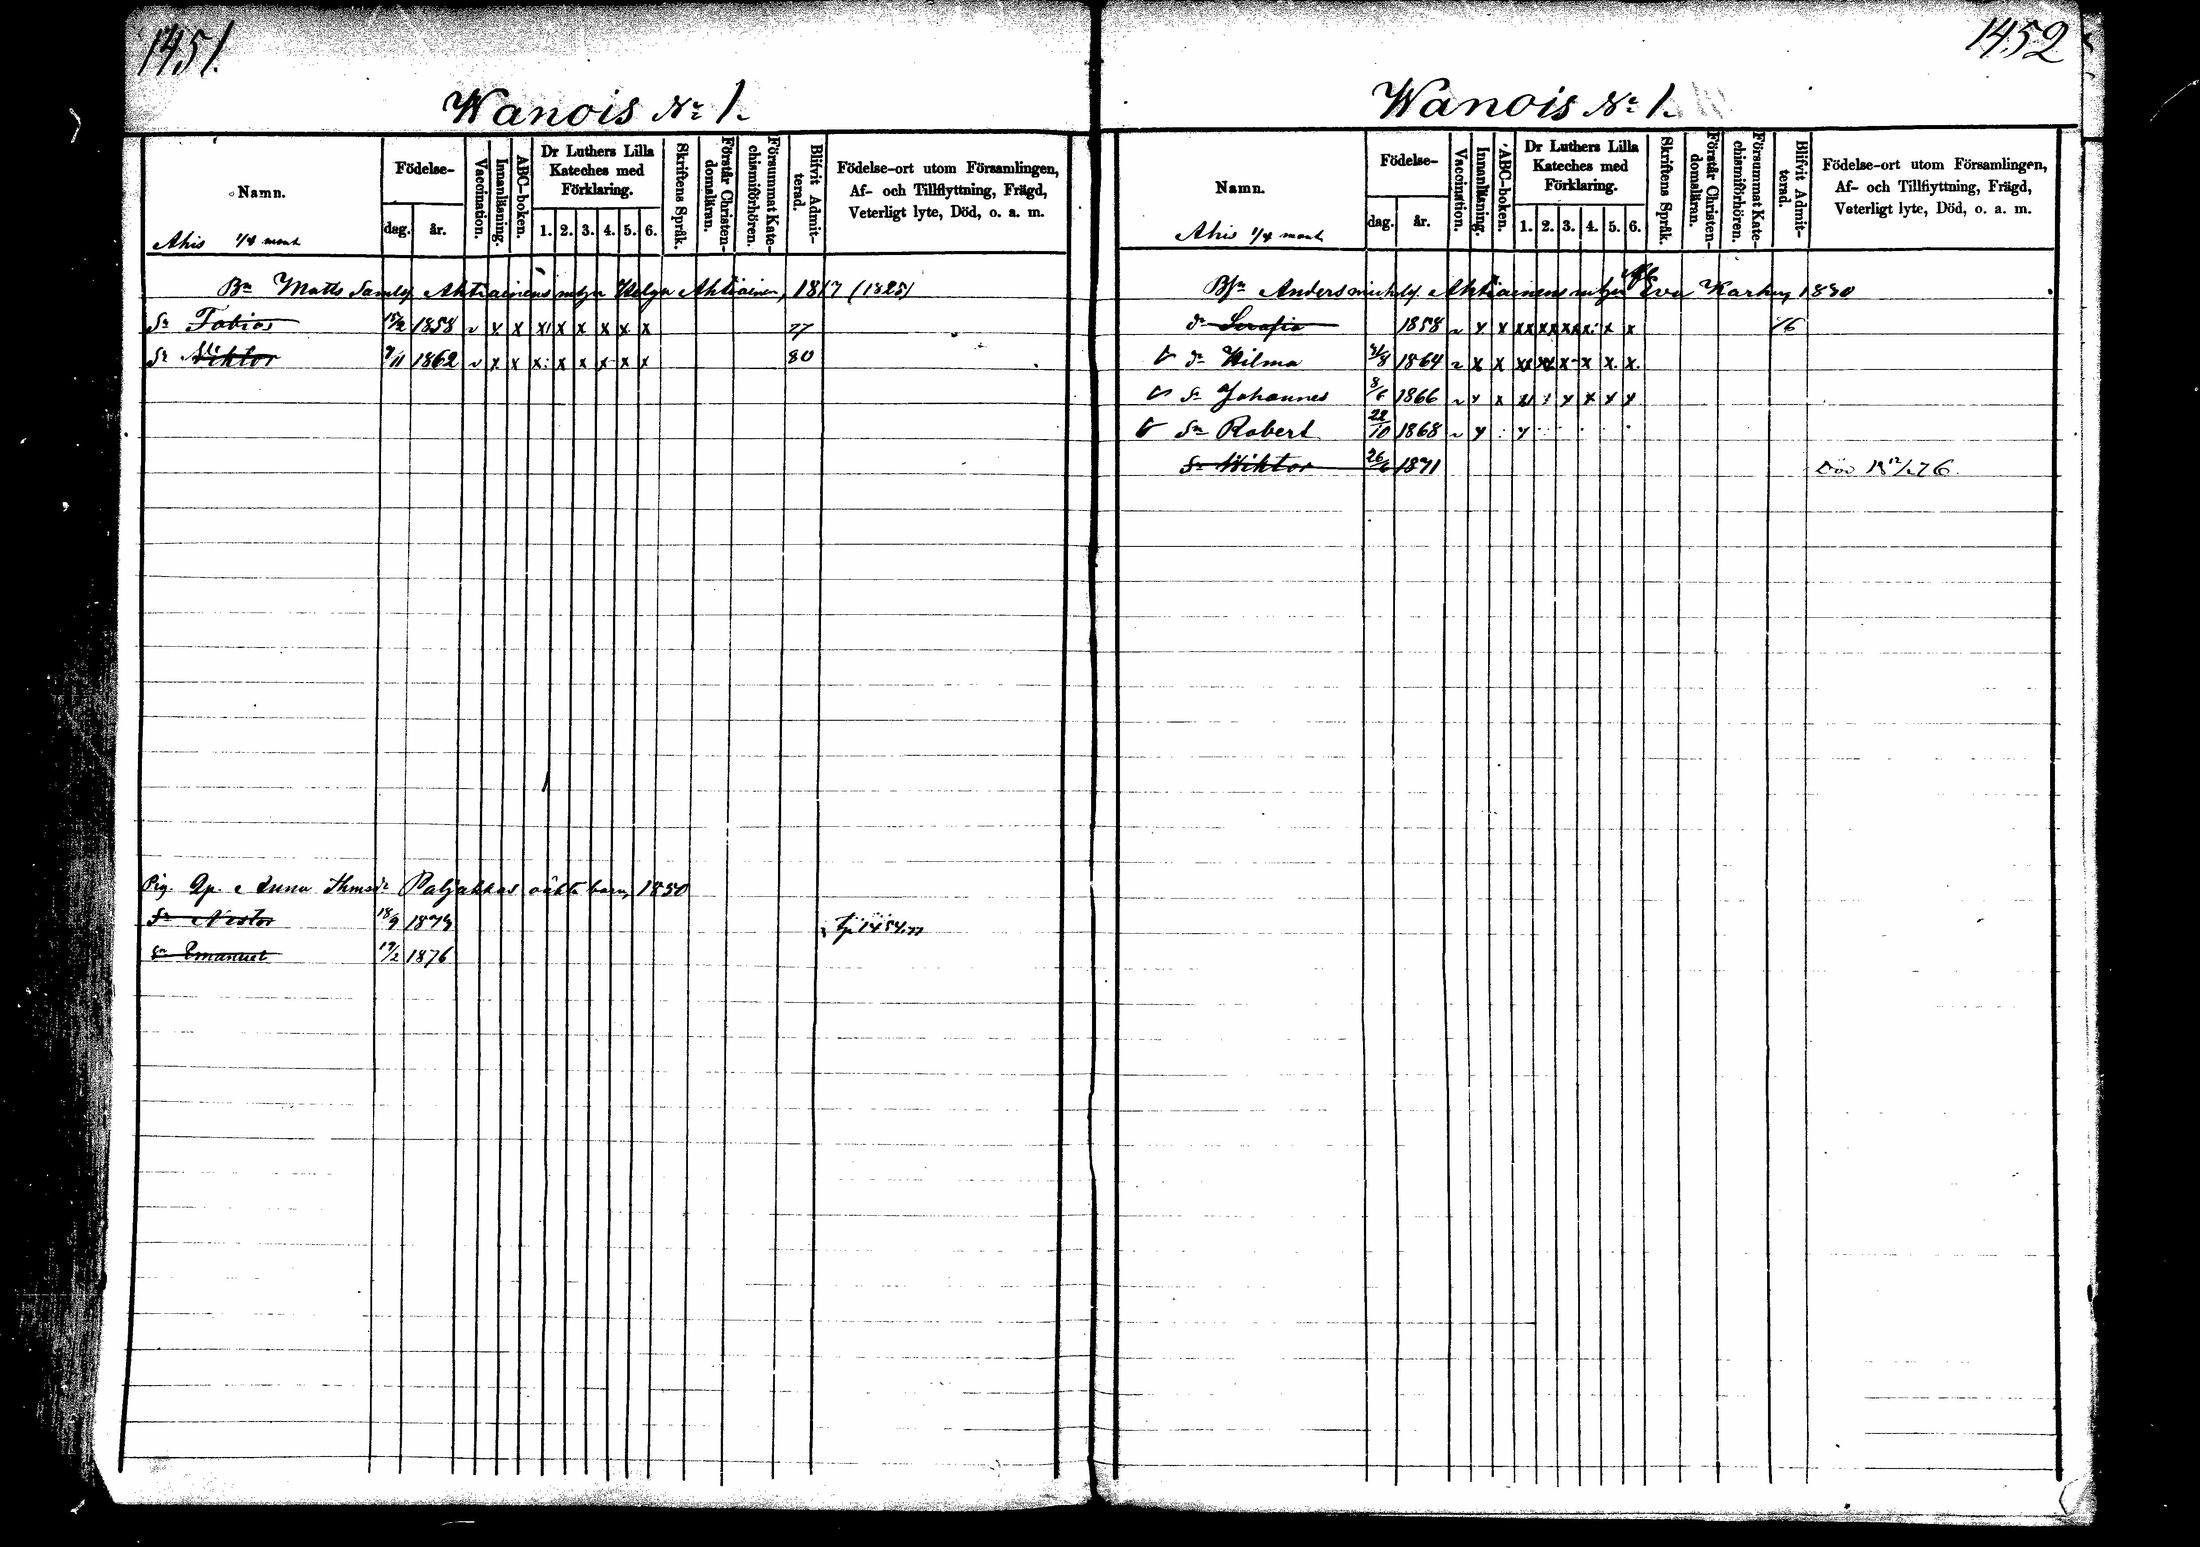 1451.
Wanois No 1.
Namn.
Ahis 1/4 mant
Födelse-
dag.
år.
Vaccination.
Innanläsning.
ABC-boken.
Dr Luthers Lilla Kateches med Förklaring.
1. 2. 3. 4. 5. 6.
Skriftens Språk.
Förstår Christendomsläran.
Försummat Katechismiförhören.
Blifvit Admitterad.
Födelse-ort utom Församlingen,
Af- och Tillflyttning, Frägd,
Veterligt lyte, Död, o. a. m.
Bn Matts Samlsf Ahtiainens m hu Helga Ahtiainen, 1817 (1825)
Sn Tobias 15/2 1858 v x x x x x x x x 77
Sn Wiktor 9/11 1862 v x x x x x x x x 80
Pig. Ap. Anna Thmsdr Paljakkas oäkta barn, 1850
Sn Nestor 18/9 1873 tp 1454.77
Sn Emanuel 17/2 1876
1452
Wanois No 1.
Namn.
Ahis 1/4 mant
Födelse-
dag.
år.
Vaccination.
Innanläsning.
ABC-boken.
Dr Luthers Lilla Kateches med Förklaring.
1. 2. 3. 4. 5. 6.
Skriftens Språk.
Förstår Christendomsläran.
Försummat Katechismiförhören.
Blifvit Admitterad.
Födelse-ort utom Församlingen,
Af- och Tillflyttning, Frägd,
Veterligt lyte, Död, o. a. m.
Anders Michelsf. Ahtiainens Eva Karhu, 1830
dr Serafia 1858 v x x xx xx xx x x x 76
dr Hilma 31/8 1864 v x x xx xx x x x x
Sn Johannes 8/6 1866 v x x x x x x x
Sn Robert 22/10 1868 v x x
Sn Wiktor 26/6 1871 Död 18 12/2 76.